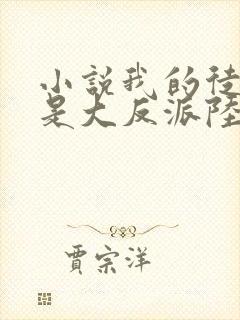 小說我的徒
是大反派陸
賈宗洋